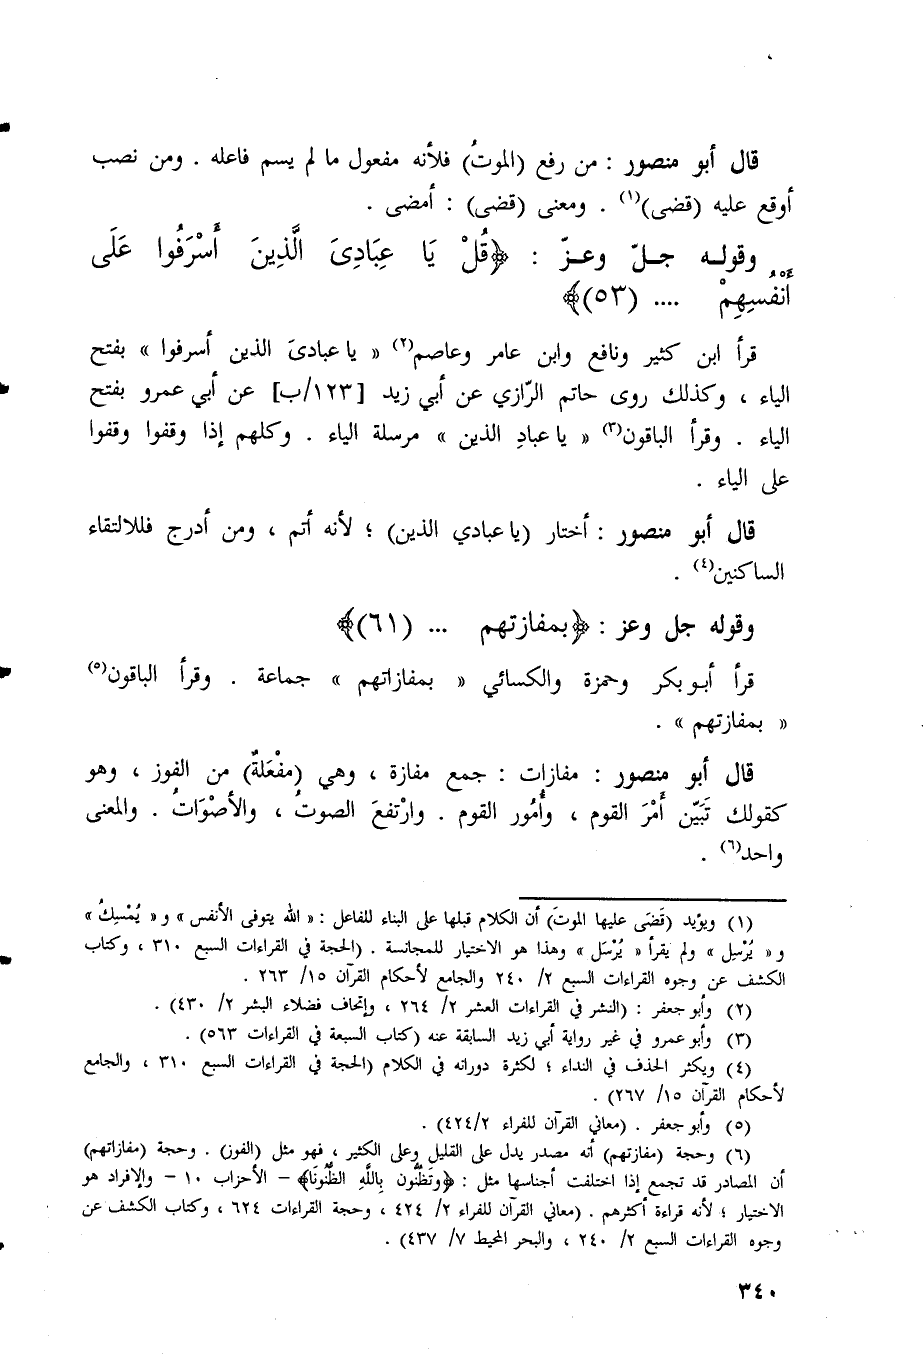 قال أبو منصور : من رفع (الموتُ) فلأنه مفعول ما لم يسم فاعله . ومن نصب
أوقع عليه (قضى)(١) . ومعنى (قضى) : أمضى .
وقوله جـلّ وعـزّ : ﴿قُلْ يَا عِبَادِىَ الَّذِينَ أَسْرَفُوا عَلَى
أَنفُسِهِمْ .... (٥٣)﴾
قرأ ابن كثير ونافع وابن عامر وعاصم(٢) « يا عبادىَ الذين أسرفوا » بفتح
الياء ، وكذلك روى حاتم الرّازي عن أبي زيد [١٢٣/ب] عن أبي عمرو بفتح
الياء . وقرأ الباقون(٣) « يا عبادِ الذين » مرسلة الياء . وكلهم إذا وقفوا وقفوا
على الياء .
قال أبو منصور : أختار (يا عبادي الذين) ؛ لأنه أتم ، ومن أدرج فللالتقاء
الساكنين(٤) .
وقوله جل وعز : ﴿بمفازتهم ... (٦١)﴾
قرأ أبـو بكر وحمزة والكسائي « بمفازاتهم » جماعة . وقرأ الباقون(٥)
« بمفازتهم » .
قال أبو منصور : مفازات : جمع مفازة ، وهي (مفْعَلةٌ) من الفوز ، وهو
كقولك تَبَيّن أَمْرَ القوم ، وأُمُور القوم . وارْتفعَ الصوتُ ، والأصْوَاتُ . والمعنى
واحد(٦) .
(١) ويؤيد (قَضَى عليها الموتَ) أن الكلام قبلها على البناء للفاعل : « الله يتوفى الأنفس » و « يُمْسِكُ »
و « يُرْسِل » ولم يقرأ « يُرْسَل » وهذا هو الاختيار للمجانسة . (الحجة في القراءات السبع ٣١٠ ، وكتاب
الكشف عن وجوه القراءات السبع ٢/ ٢٤٠ والجامع لأحكام القرآن ١٥/ ٢٦٣ .
(٢) وأبو جعفر : (النشر في القراءات العشر ٢/ ٢٦٤ ، وإتحاف فضلاء البشر ٢/ ٤٣٠) .
(٣) وأبو عمرو في غير رواية أبي زيد السابقة عنه (كتاب السبعة في القراءات ٥٦٣) .
(٤) ويكثر الحذف في النداء ؛ لكثرة دورانه في الكلام (الحجة في القراءات السبع ٣١٠ ، والجامع
لأحكام القرآن ١٥/ ٢٦٧) .
(٥) وأبو جعفر . (معاني القرآن للفراء ٤٢٤/٢) .
(٦) وحجة (مفازتهم) أنه مصدر يدل على القليل وعلى الكثير ، فهو مثل (الفوز) . وحجة (مفازاتهم)
أن المصادر قد تجمع إذا اختلفت أجناسها مثل : ﴿وَتَظُنُّون بِاللَّهِ الظُّنُونَا﴾ – الأحزاب ١٠ – والإفراد هو
الاختيار ؛ لأنه قراءة أكثرهم . (معاني القرآن للفراء ٢/ ٤٢٤ ، وحجة القراءات ٦٢٤ ، وكتاب الكشف عن
وجوه القراءات السبع ٢/ ٢٤٠ ، والبحر المحيط ٧/ ٤٣٧) .
٣٤٠